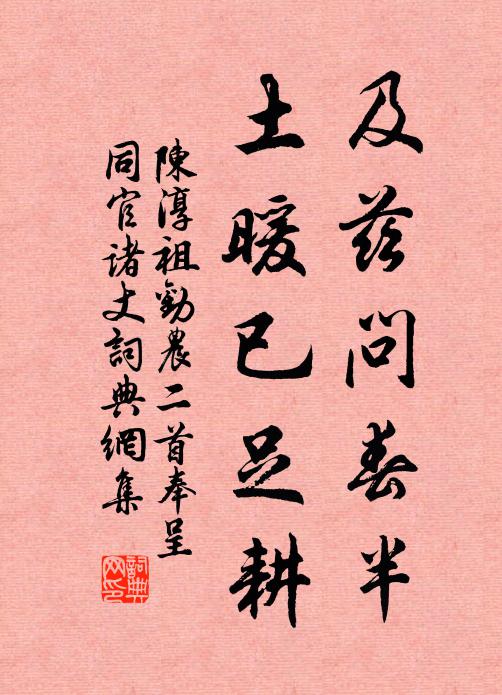 及茲問春半
土暖已足耕
陳淳祖勸農二首奉呈
同官諸丈詞典網集
詞典
网印